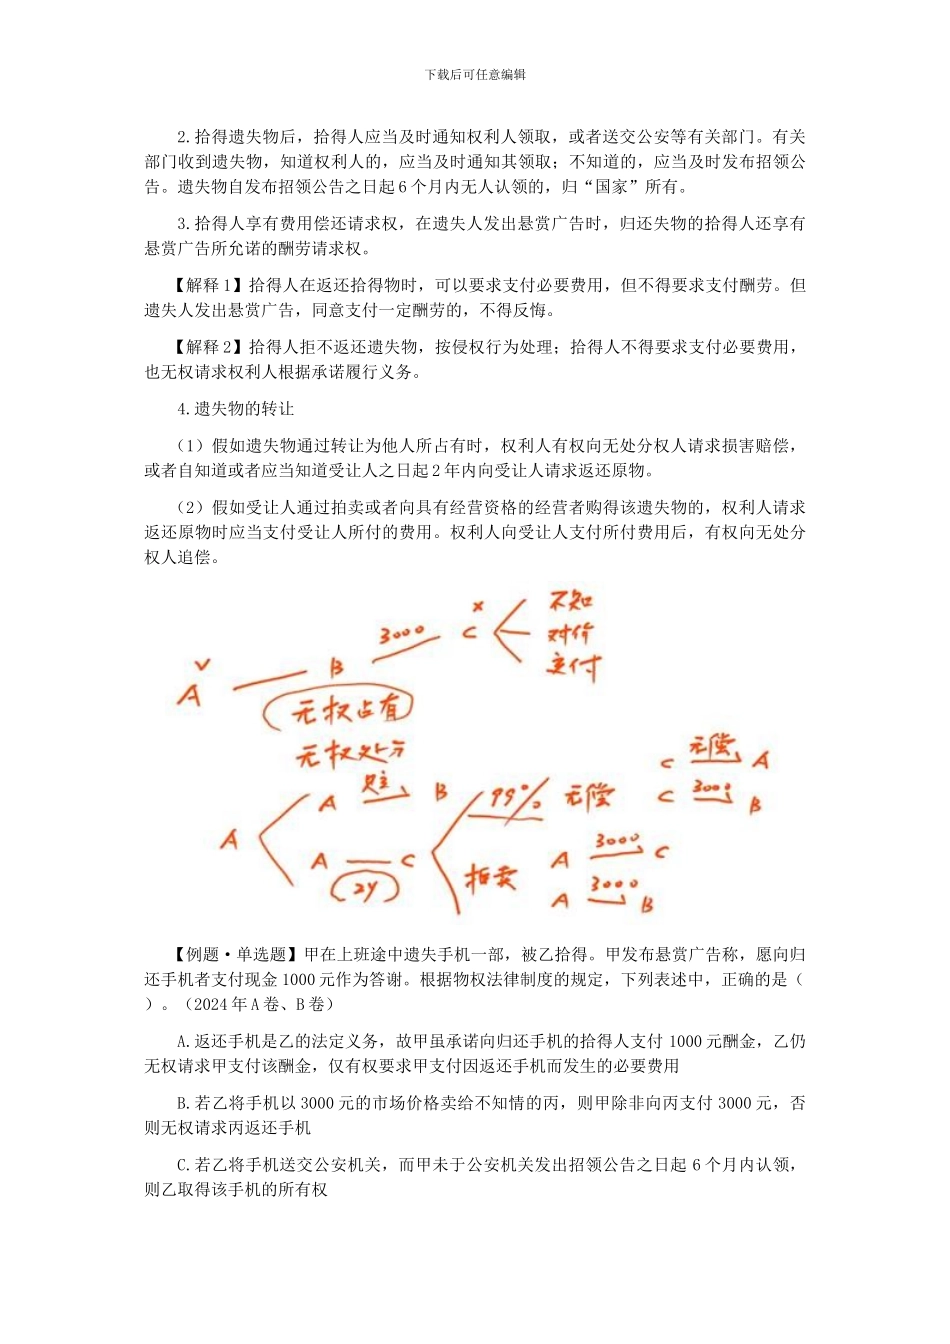 下载后可任意编辑
2.拾得遗失物后，拾得人应当及时通知权利人领取，或者送交公安等有关部门。有关
部门收到遗失物，知道权利人的，应当及时通知其领取；不知道的，应当及时发布招领公
告。遗失物自发布招领公告之日起6个月内无人认领的，归“国家”所有。
3.拾得人享有费用偿还请求权，在遗失人发出悬赏广告时，归还失物的拾得人还享有
悬赏广告所允诺的酬劳请求权。
【解释1】拾得人在返还拾得物时，可以要求支付必要费用，但不得要求支付酬劳。但
遗失人发出悬赏广告，同意支付一定酬劳的，不得反悔。
【解释2】拾得人拒不返还遗失物，按侵权行为处理；拾得人不得要求支付必要费用，
也无权请求权利人根据承诺履行义务。
4.遗失物的转让
（1）假如遗失物通过转让为他人所占有时，权利人有权向无处分权人请求损害赔偿，
或者自知道或者应当知道受让人之日起2年内向受让人请求返还原物。
（2）假如受让人通过拍卖或者向具有经营资格的经营者购得该遗失物的，权利人请求
返还原物时应当支付受让人所付的费用。权利人向受让人支付所付费用后，有权向无处分
权人追偿。
× 不知
3000 C 对价
B 交付
A
无权占有
无权处分
C 无偿 A
A B 99% 无偿 C 3000 B
A
A C 拍卖 A 3000 C
2Y A 3000 B
【例题·单选题】甲在上班途中遗失手机一部，被乙拾得。甲发布悬赏广告称，愿向归
还手机者支付现金1000元作为答谢。根据物权法律制度的规定，下列表述中，正确的是（
）。（2024年A卷、B卷）
A.返还手机是乙的法定义务，故甲虽承诺向归还手机的拾得人支付1000元酬金，乙仍
无权请求甲支付该酬金，仅有权要求甲支付因返还手机而发生的必要费用
B.若乙将手机以3000元的市场价格卖给不知情的丙，则甲除非向丙支付3000元，否
则无权请求丙返还手机
C.若乙将手机送交公安机关，而甲未于公安机关发出招领公告之日起6个月内认领，
则乙取得该手机的所有权